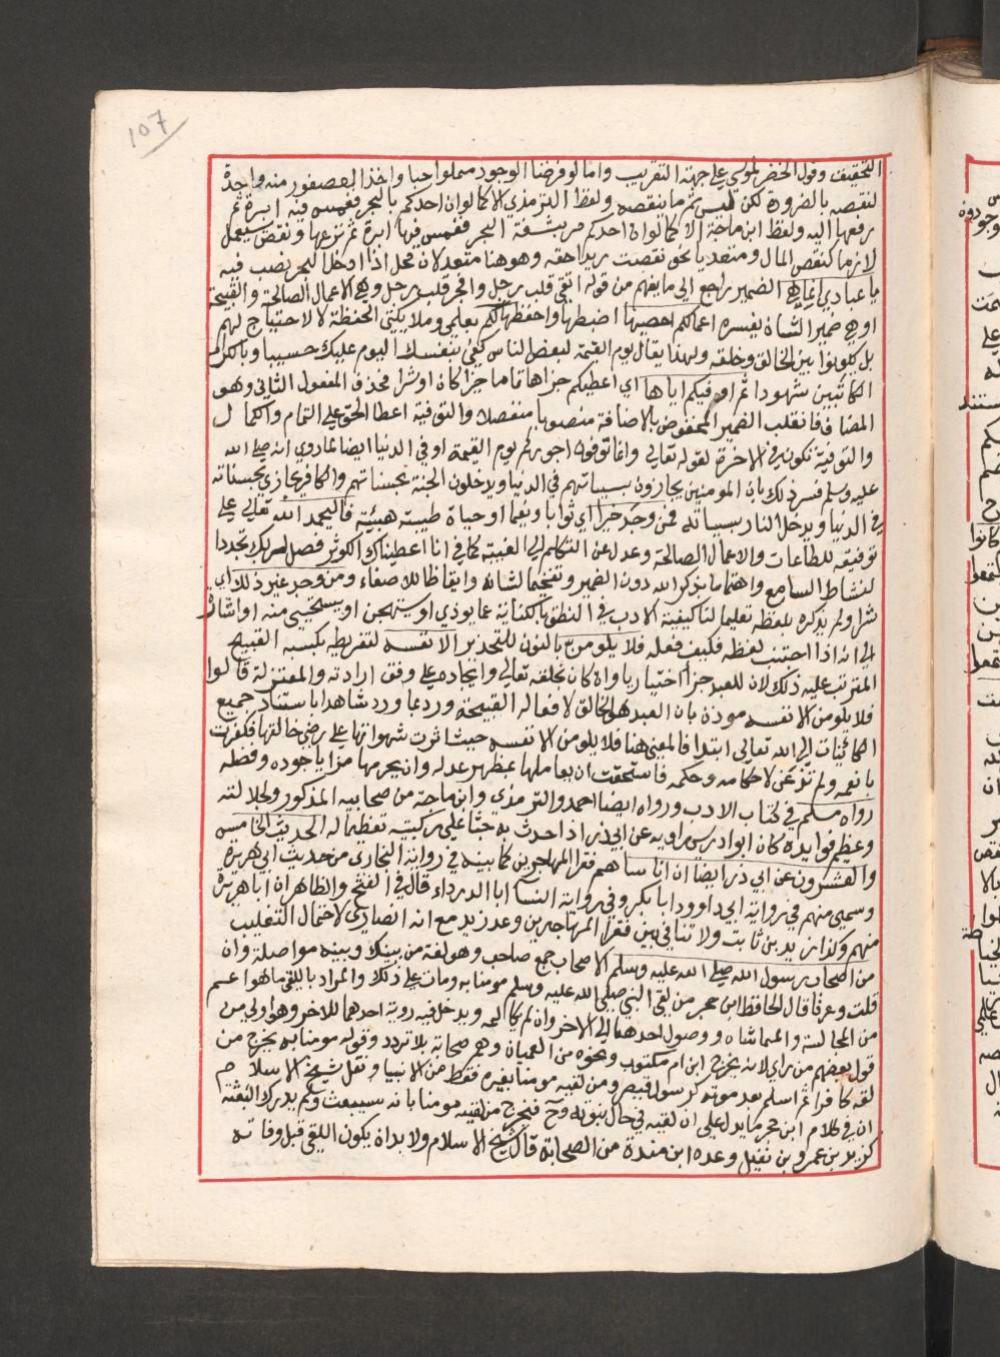 107
التحقيق وقول الخضر لموسى على جهة التقريب واما لو فرضنا الوجود مملوا حبا واخذ العصفور منه واحدة
لنقصه بالضرورة لكن ليس ثم ما ينقصه ولفظ الترمذي الا كما لو ان احدكم بالبحر فغمس فيه ابرة ثم
رفعها اليه ولفظ ابن ماجة الا كما لو ان احدكم مر بشفة البحر فغمس فيها ابرة ثم نزعها ونقص يستعمل
لازما كنقص المال ومتعديا نحو نقصت زيدا حقه وهو هنا متعد لان محل اذا ادخل البحر نصب فيه
يا عبادي انما هي الضمير راجع الى ما يفهم من قوله اتقى قلب رجل وافجر قلب رجل وهي الاعمال الصالحة والقبيحة
او هي ضمير الشان يفسره اعمالكم احصيها اضبطها واحفظها لكم بعلمي وملايكتي الحفظة لا لاحتياج لهم
بل ليكونوا بين الخالق وخلقه ولهذا يقال يوم القيمة لبعض الناس كفى بنفسك اليوم عليك حسيبا وبالكرام
الكاتبين شهودا ثم اوفيكم اياها اي اعطيكم جزاها تاما خيرا كان او شرا فحذف المفعول الثاني وهو
المضاف فانقلب الضمير المخفوض بالاضافة منصوبا منفصلا والتوفية اعطا الحق على التمام والكمال
والتوفية تكون في الاخرة لقوله تعالى وانما توفون اجوركم يوم القيمة او في الدنيا ايضا لما روي انه صلى الله
عليه وسلم فسر ذلك بان المومنين يجازون بسيياتهم في الدنيا ويدخلون الجنة بحسناتهم والكافر يجازي بحسناته
في الدنيا ويدخل النار بسيياته فمن وجد خيرا اي ثوابا ونعما او حياة طيبة هنيئة فليحمد الله تعالى على
توفيقه للطاعات والاعمال الصالحة وعدل عن التكلم الى الغيبة كما في انا اعطيناك الكوثر فصل لربك تجددا
لنشاط السامع واهتماما بذكر الله دون الضمير وتفخيما لشانه وايقاظا للاصغاء ومن وجد غير ذلك اي
شرا ولم يذكره بلفظه تعليما لنا كيفية الادب في النطق بالكناية عما يوذي او يستهجن او يستحيى منه او اشارة
الى انه اذا اجتنب لفظه فكيف فعله فلا يلومن بالنون للتحذير الا نفسه لتفريطه بكسبه القبيح
المترتب عليه ذلك لان للعبد جزأ اختياريا وان كان بخلقه تعالى وايجاده على وفق ارادته والمعتزلة قالوا
فلا يلومن الا نفسه موذن بان العبد هو الخالق لافعاله القبيحة ورد بما ورد شاهدا باستناد جميع
الكائنات الى الله تعالى ابتدا فالمعنى هنا فلا يلومن الا نفسه حيث اثرت شهواتها على رضى خالقها فكفرت
بانعمه ولم تذعن لاحكامه وحكمه فاستحقت ان يعاملها بمظهر عدله وان يحرمها مزايا جوده وفضله
رواه مسلم في كتاب الادب ورواه ايضا احمد والترمذي وابن ماجة من صحابيه المذكور ولجلالته
وعظم فوايده كان ابو ادريس راويه عن ابي ذر اذا حدث به جثا على ركبتيه تعظيما له الحديث الخامس
والعشرون عن ابي ذر ايضا ان اناسا هم فقرا المهاجرين كما بينه في رواية البخاري من حديث ابي هريرة
وسمي منهم في رواية ابي داوود ابا بكر وفي رواية النسا ابا الدرداء قال في الفتح والظاهر ان ابا هريرة
منهم وكذا زيد بن ثابت ولا تنافي بين فقرا المهاجرين وعد زيد مع انه انصاري لاحتمال التغليب
من اصحاب رسول الله صلى الله عليه وسلم الاصحاب جمع صاحب وهو لغة من بينك وبينه مواصلة وان
قلت وعرفا قال الحافظ ابن حجر من لقي النبي صلى الله عليه وسلم مومنا به ومات على ذلك والمراد باللقي ما هو اعم
من المجالسة والمماشاة ووصول احدهما الى الاخر وان لم يكالمه ويدخل فيه روية احدهما للاخر وهو اولى من
قول بعضهم من راي لانه يخرج ابن ام مكتوب ونحوه من العميان وهم صحابة بلا تردد وقوله مومنا به يخرج من
لقيه كافرا ثم اسلم بعد موته كرسول قيصر ومن لقيه مومنا بغيره فقط من الانبيا ونقل شيخ الاسلام
ان في كلام ابن حجر ما يدل على ان لقيه في حال نبوته وح فيخرج من لقيه مومنا بانه سيبعث ولم يدرك البعثة
كزيد بن عمرو بن نفيل وعده ابن مندة من الصحابة قال شيخ الاسلام ولا بد ان يكون اللقي قبل وفاته